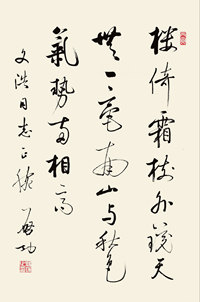 楼倚霜樹外鏡天
無一毫南山与秋色
氣勢両相高
文洪同志正腕 啟功